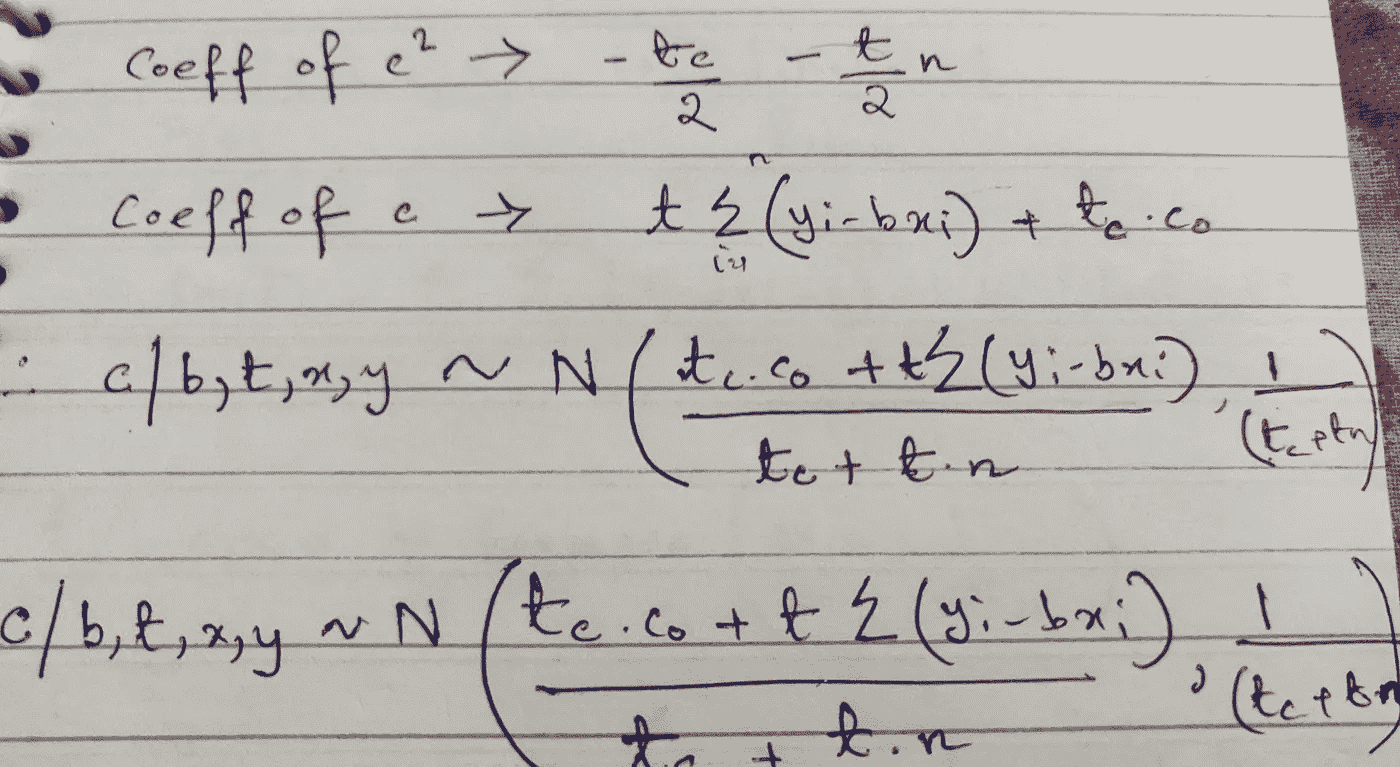 Coeff of c² → - tc/2 - t/2 n
Coeff of c → t Σ(i=1 to n) (yi - bxi) + tc . c0
∴ c/b,t,x,y ~ N ( (tc . c0 + t Σ(yi - bxi)) / (tc + t.n) , 1/(tc + tn) )
c/b,t,x,y ~ N ( (tc . c0 + t Σ(yi - bxi)) / (tc + t.n) , 1/(tc + tn